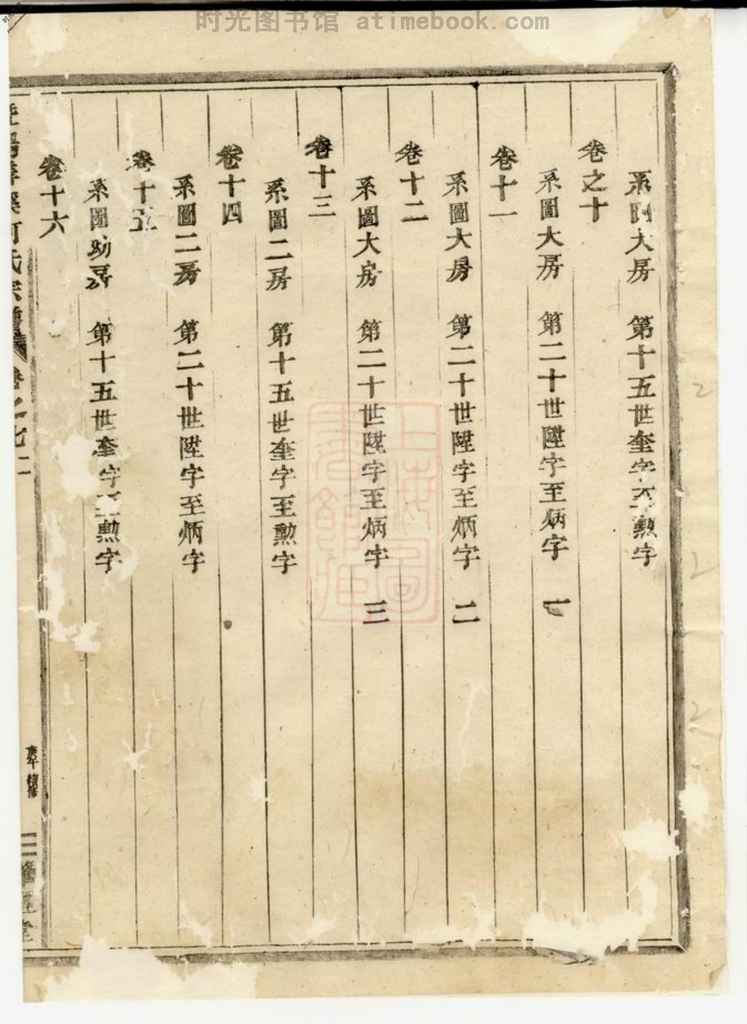 时光图书馆 atimebook.com
系圖大房 第十五世奎字至勲字
卷之十
系圖大房 第二十世陞字至炳字 一
卷十一
系圖大房 第二十世陞字至炳字 二
卷十二
系圖大房 第二十世陞字至炳字 三
卷十三
系圖二房 第十五世奎字至勲字
卷十四
系圖二房 第二十世陞字至炳字
卷十五
系圖房 第十五世奎字至勲字
卷十六
氏宗譜 卷之七 二